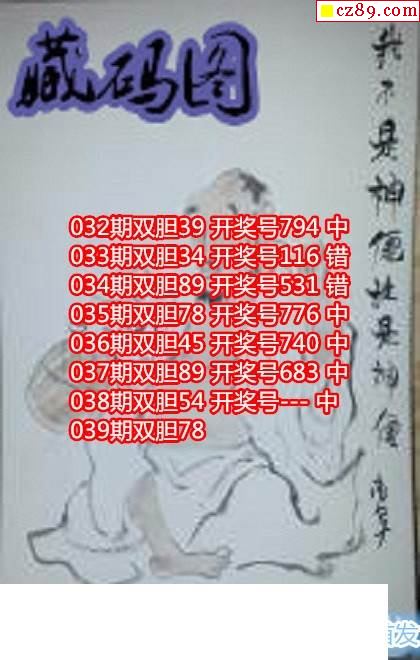 cz89.com
藏码图
我不是神但北是神僧
032期双胆39 开奖号794 中
033期双胆34 开奖号116 错
034期双胆89 开奖号531 错
035期双胆78 开奖号776 中
036期双胆45 开奖号740 中
037期双胆89 开奖号683 中
038期双胆54 开奖号--- 中
039期双胆78
首发